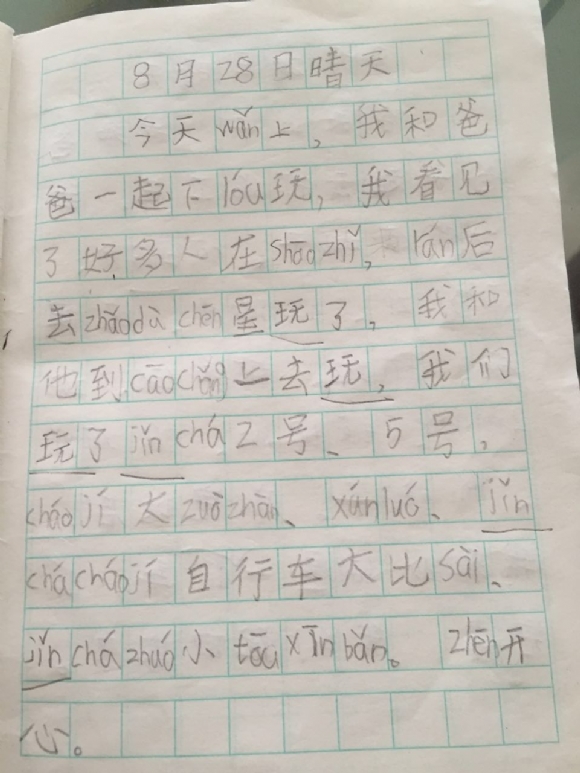 8月28日晴天
今天wǎn上，我和爸
爸一起下lóu玩，我看见
了好多人在shāozhǐ，rán后
去zhǎodù chēn星玩了，我和
他到cāochǎng上去玩，我们
玩了jǐn chá 2号、5号，
cháojí大zuòzhàn、xúnluó、jǐn
chá cháojí自行车大比sài、
jǐn chá zhuó小tōu xīn bǎn。zhēn开
心。